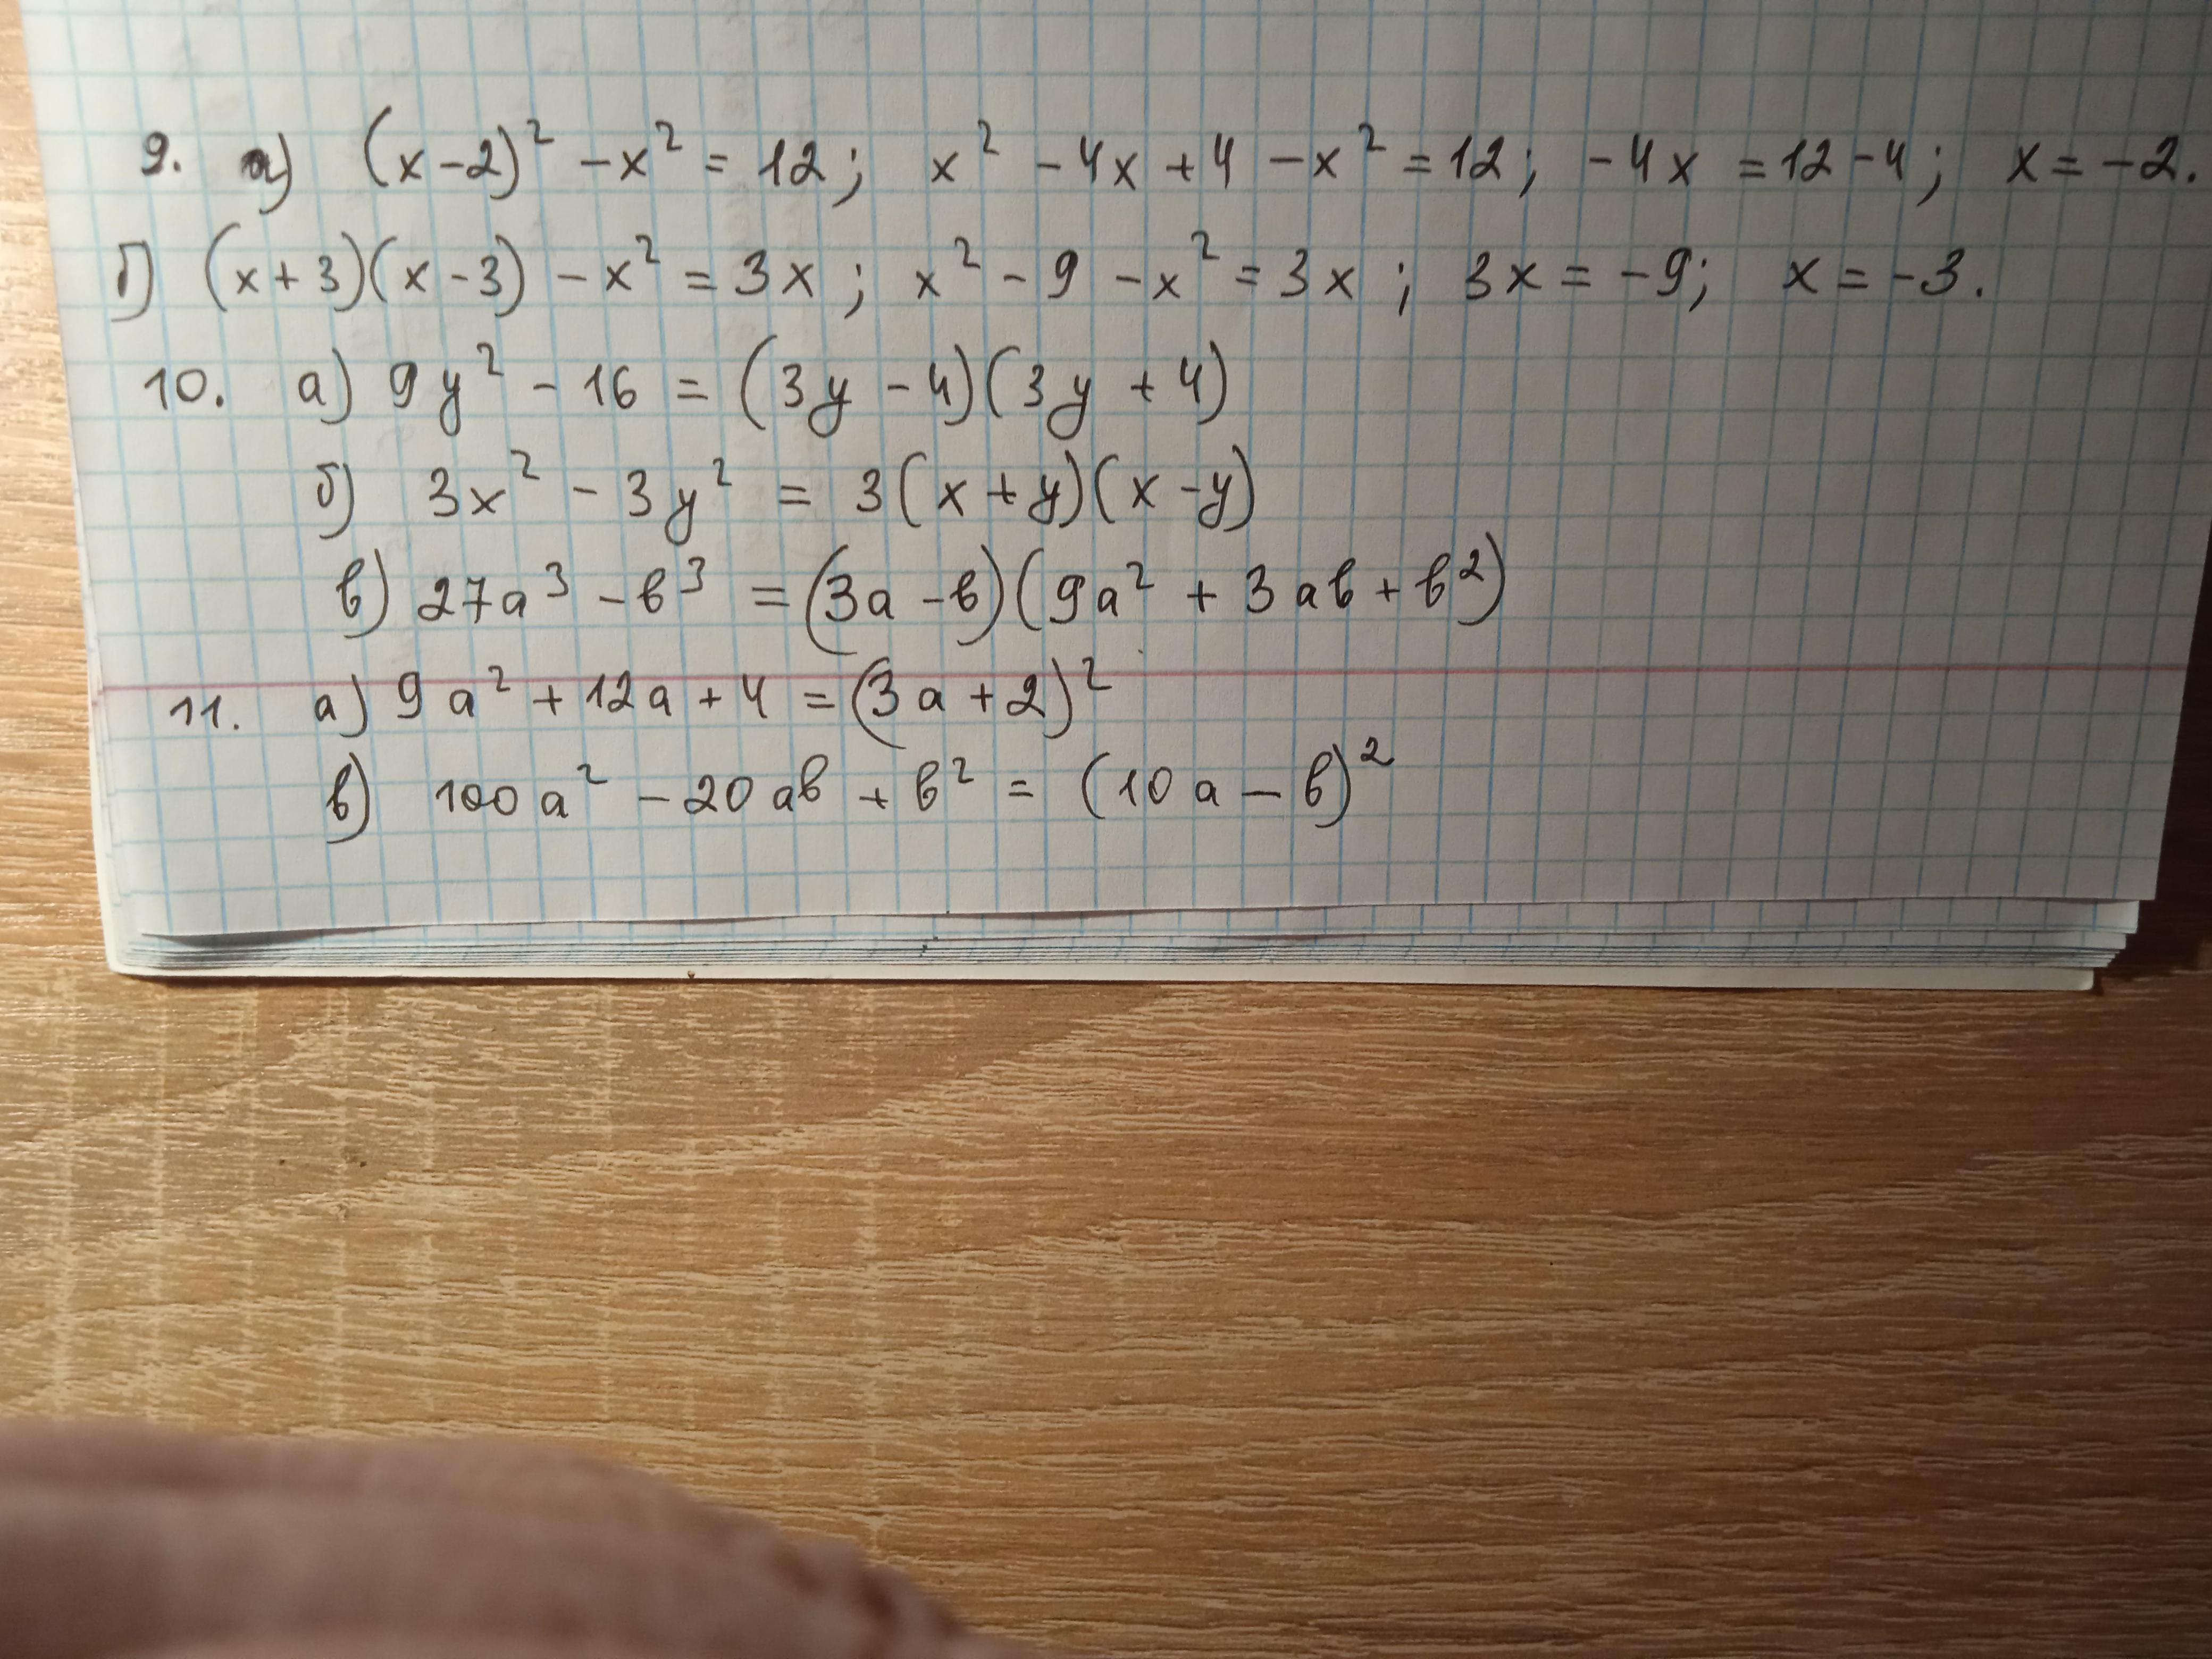 9. а) (x-2)² - x² = 12; x² - 4x + 4 - x² = 12; -4x = 12-4; x = -2.
б) (x+3)(x-3) - x² = 3x; x² - 9 - x² = 3x; 3x = -9; x = -3.
10. а) 9y² - 16 = (3y - 4)(3y + 4)
б) 3x² - 3y² = 3(x+y)(x-y)
в) 27a³ - в³ = (3a - в)(9a² + 3aв + в²)
11. а) 9a² + 12a + 4 = (3a + 2)²
в) 100a² - 20aв + в² = (10a - в)²